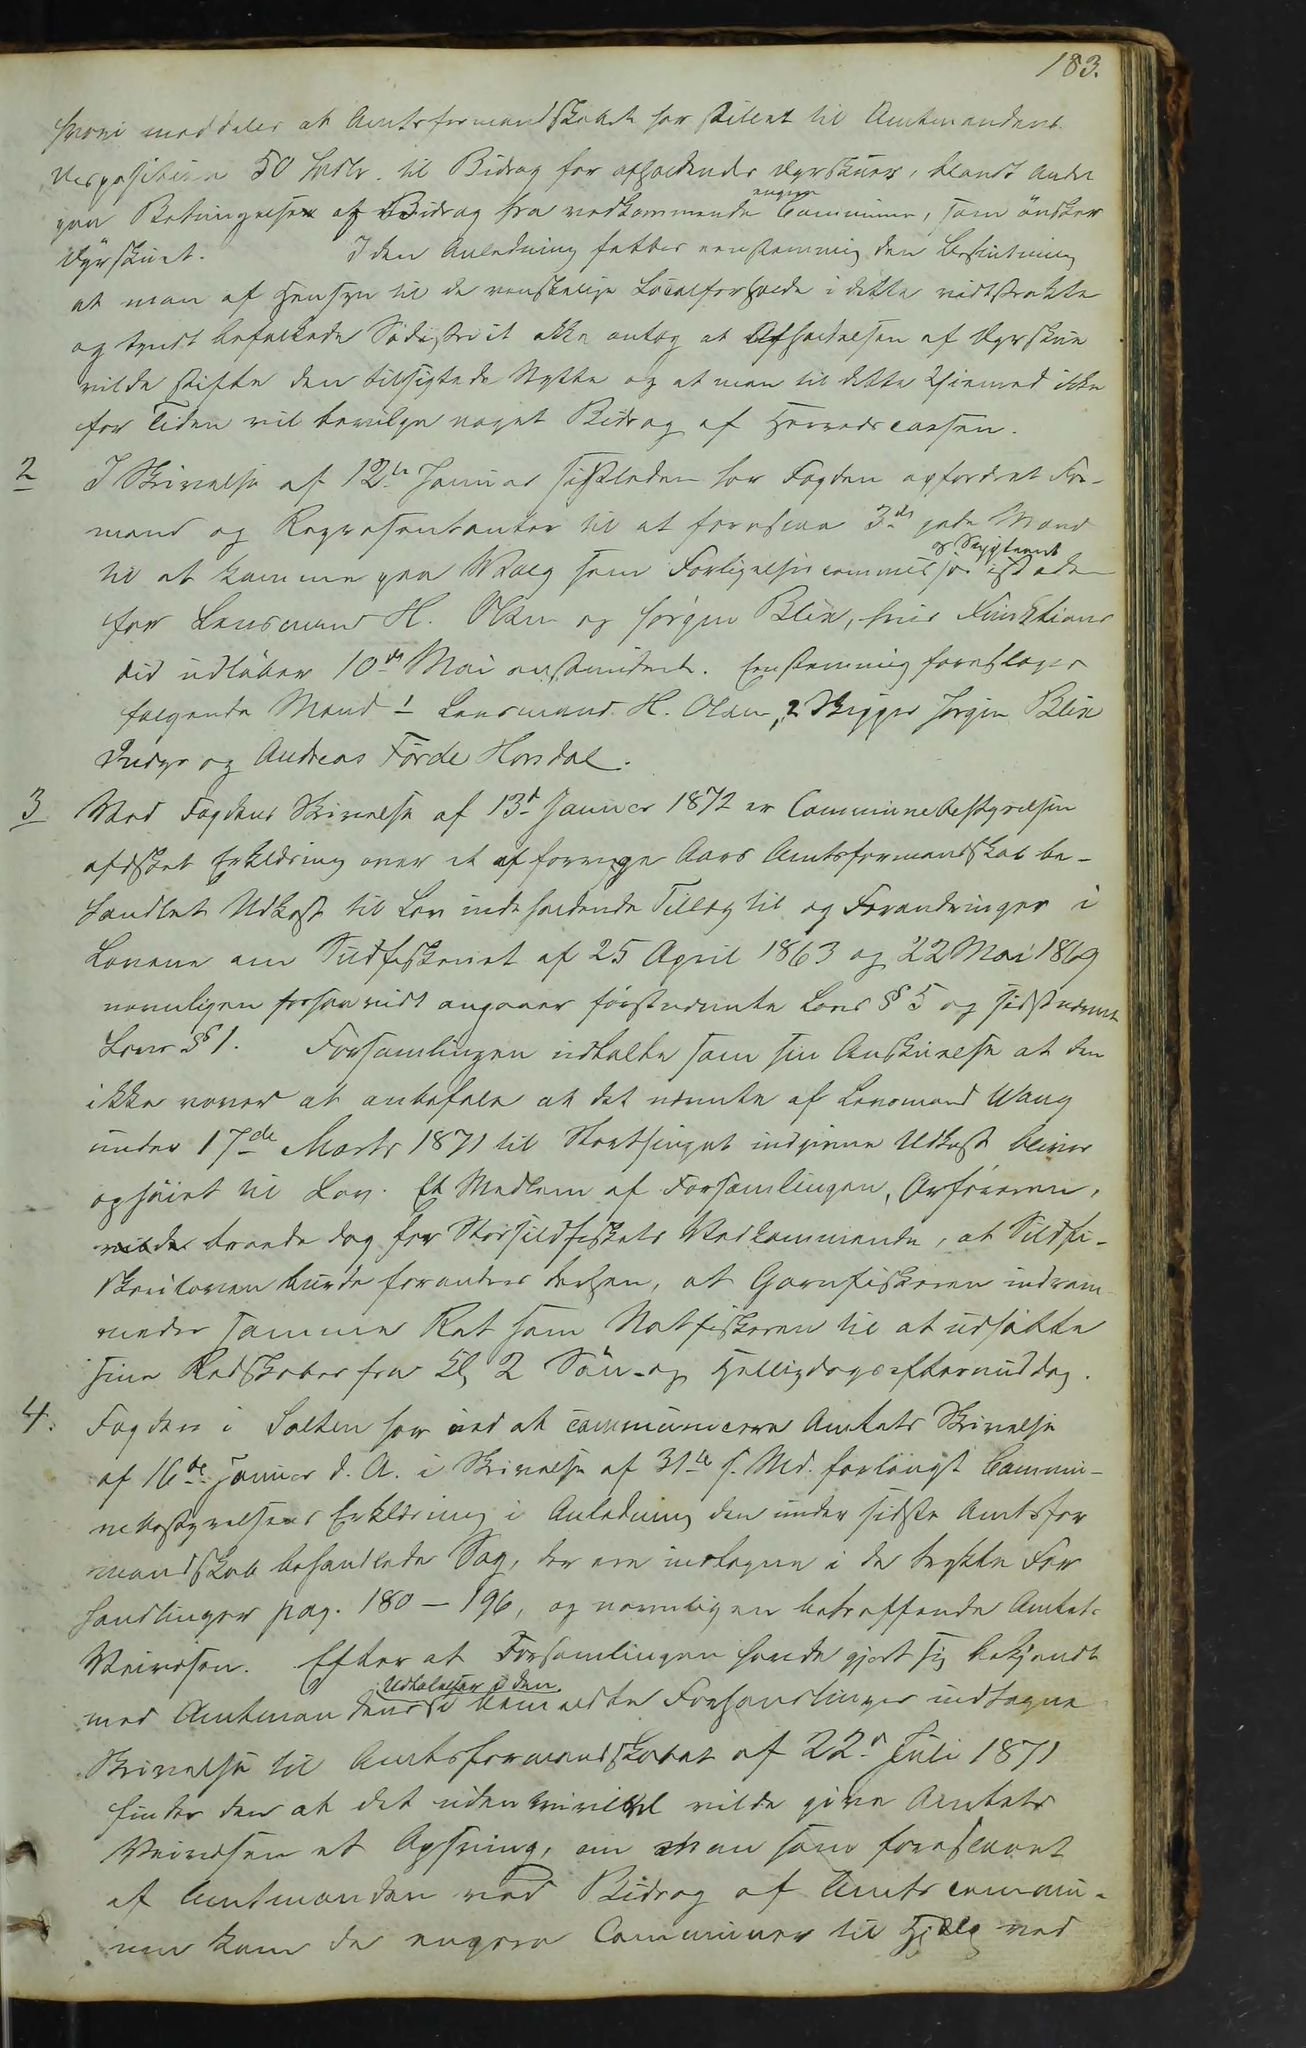 183.
hvori meddeles at Amtsformandskabet har stillet til Amtmandens
Disposition 50 Spdlr. til Bidrag for afholdende Dyrskuer, blandt Andet
paa Betingelse af Bidrag fra vedkommende engere Commune, som ønsker
Dyrskuet. I den Anledning fattes eenstemmig den Beslutning
at man af Hensyn til de vanskelige Localforholde i dette vidtstrakte
og tyndt befolkede Sødistrict ikke antog at Afholdelsen af Dyrskue
vilde stifte den tilsigtede Nytte og at man til dette Øiemed ikke
for Tiden vil bevilge noget Bidrag af Herredscassen.
2 I Skrivelse af 12te Januar sidstleden har Fogden opfordret For-
mænd og Repræsentanter til at foreslaa 3de gode Mænd
til at komme paa Valg som Forligelsescommissær og Suppleant istedet
for Lensmand H. Olsen og Jørgen Blix, hvis Funktions
tid udløber 10de Mai anstundende. Eenstemmig foresloges
følgende Mænd 1 Lensmand H. Olsen, 2 Skipper Jørgen Blix
Indyr og Andreas Førde Horsdal.
3 Ved Fogdens Skrivelse af 13de Januar 1872 er Communebestyrelsen
afæsket Erklæring over et af forrige Aars Amtsformandskab be-
handlet Udkast til Lov indeholdende Tillæg til og Forandringer i
Lovene om Sildfiskeriet af 25 April 1863 og 22 Mai 1869
navnligen forsaavidt angaaer førstnævnte Lovs § 5 og sidstnævnte
Lovs § 1. Forsamlingen udtalte som sin Anskuelse at den
ikke vover at anbefale at det nævnte af Lensmand Wang
under 17de Marts 1871 til Storthinget indgivne Udkast bliver
ophøiet til Lov. Et Medlem af Forsamlingen, Ordføreren,
vilde troede dog for Storsildfiskets Vedkommende, at Sildfi-
skeriloven burde forandres derhen, at Garnfiskeren indrøm-
medes samme Ret som Notfiskeren til at udsætte
sine Redskaber fra Kl 2 Søn- og Helligdagseftermiddag.
4. Fogden i Salten har ved at communicere Amtets Skrivelse
af 16de Januar d. A. i Skrivelse af 31te s. Md. forlangt Commu-
nebestyrelsens Erklæring i Anledning den under sidste Amtsfor
mandskab behandlede Sag, der ere indtagne i de trykte For
handlinger pag. 180 – 196, og navnligen betræffende Amtets
Veivæsen. Efter at Forsamlingen havde gjort sig bekjendt
med Amtmandens Udtalelser i den i bemeldte Forhandlinger indtagne
Skrivelse til Amtsformandskabet af 22de Juli 1871
finder den at det uden Tvivl vilde give Amtets
Veivæsen et Opsving, om man som foreslaaet
af Amtmanden ved Bidrag af Amtscommu-
nen kom de engere Communer til Hjælp ved